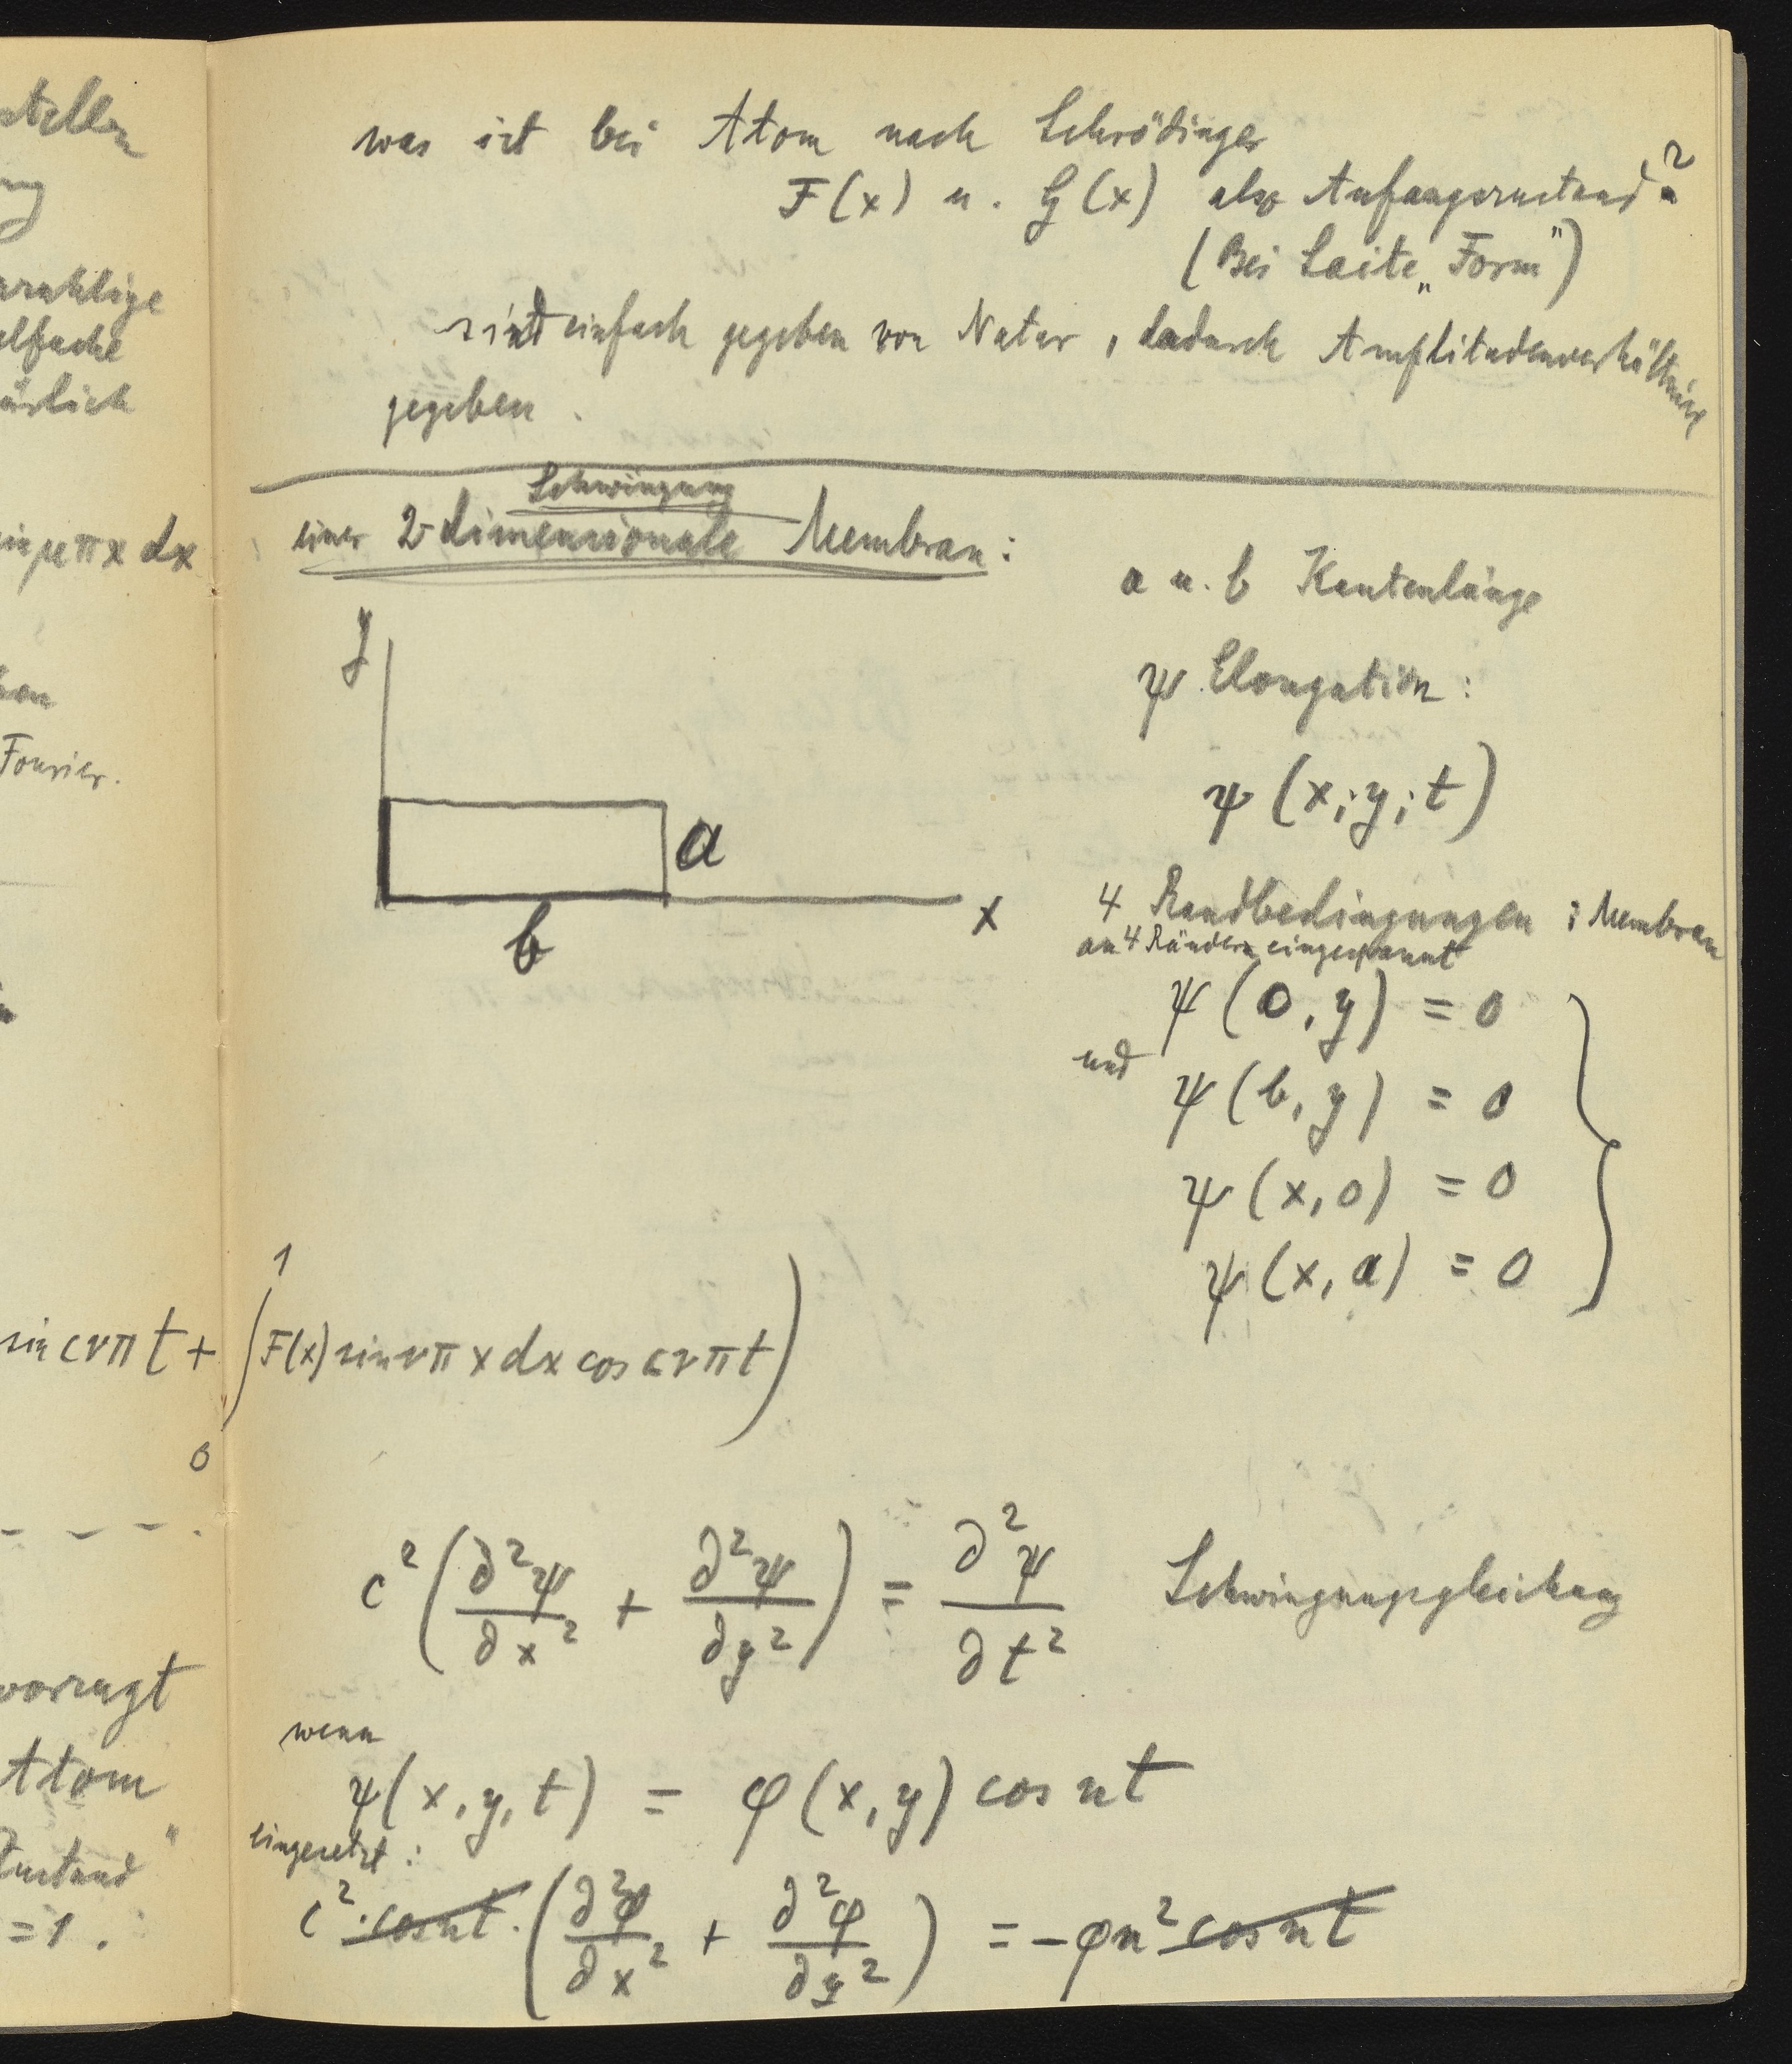 stellen
ng
arzahlige
elfache
ürlich
sin μπx dx
hen
Fourier.
vorzugt
Atom
Zustand"
=1.
was ist bei Atom nach Schrödinger
F(x) u. G(x) also Anfangszustand?
(Bei Saite „Form")
sind einfach gegeben von Natur, dadurch Amplitudenverhältnisse
gegeben.
Schwingung
einer 2-dimensionale Membran:
y
a
b
x
a u. b Kantenlänge
ψ Elongation:
ψ(x;y;t)
4 Randbedingungen: Membran
an 4 Rändern eingespannt
ψ(0,y) = 0
und
ψ(b,y) = 0
ψ(x,0) = 0
ψ(x,a) = 0
sin cνπt + ∫₀¹ F(x) sin νπx dx cos cνπt)
c² (∂²ψ/∂x² + ∂²ψ/∂y²) = ∂²ψ/∂t² Schwingungsgleichung
wenn
ψ(x,y,t) = φ(x,y) cos nt
eingesetzt:
c² · cos nt · (∂²φ/∂x² + ∂²φ/∂y²) = -φn² cos nt